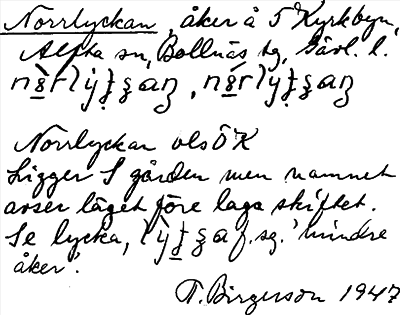 Norrlyckan, åker å 5 Kyrkbyn,
Alfta sn, Bollnäs tg, Gävl. l.
Norrlyckan
Ligger S gården men namnet
avser läget före laga skiftet.
Se lycka, f. sg. 'mindre
åker'.
T. Birgerson 1947